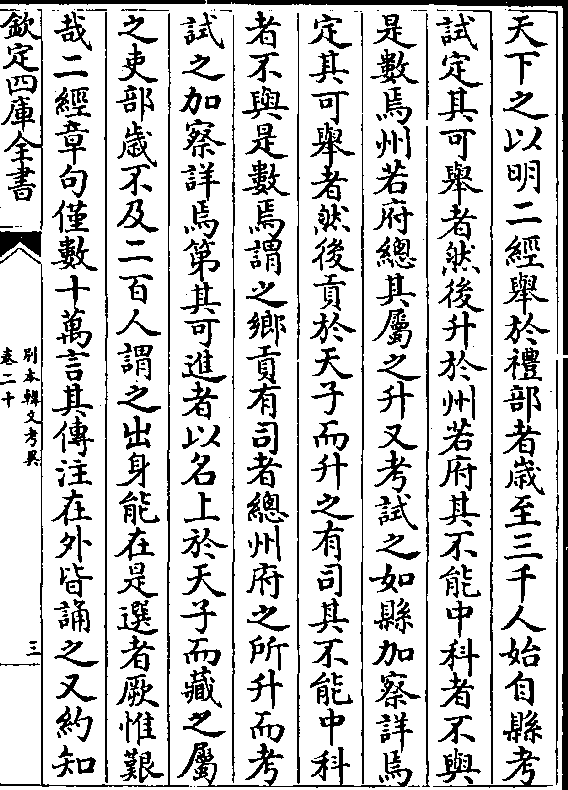 天下之以明二經舉於禮部者歳至三千人始自縣考
試定其可舉者然後升於州若府其不能中科者不與
是數焉州若府總其屬之升又考試之如縣加察詳焉
定其可舉者然後貢於天子而升之有司其不能中科
者不與是數焉謂之鄉貢有司者總州府之所升而考
試之加察詳焉第其可進者以名上於天子而藏之屬
之吏部歳不及二百人謂之出身能在是選者厥惟艱
哉二經章句僅數十萬言其傳注在外皆誦之又約知
欽定四庫全書
别本韓文考異
卷二十
三